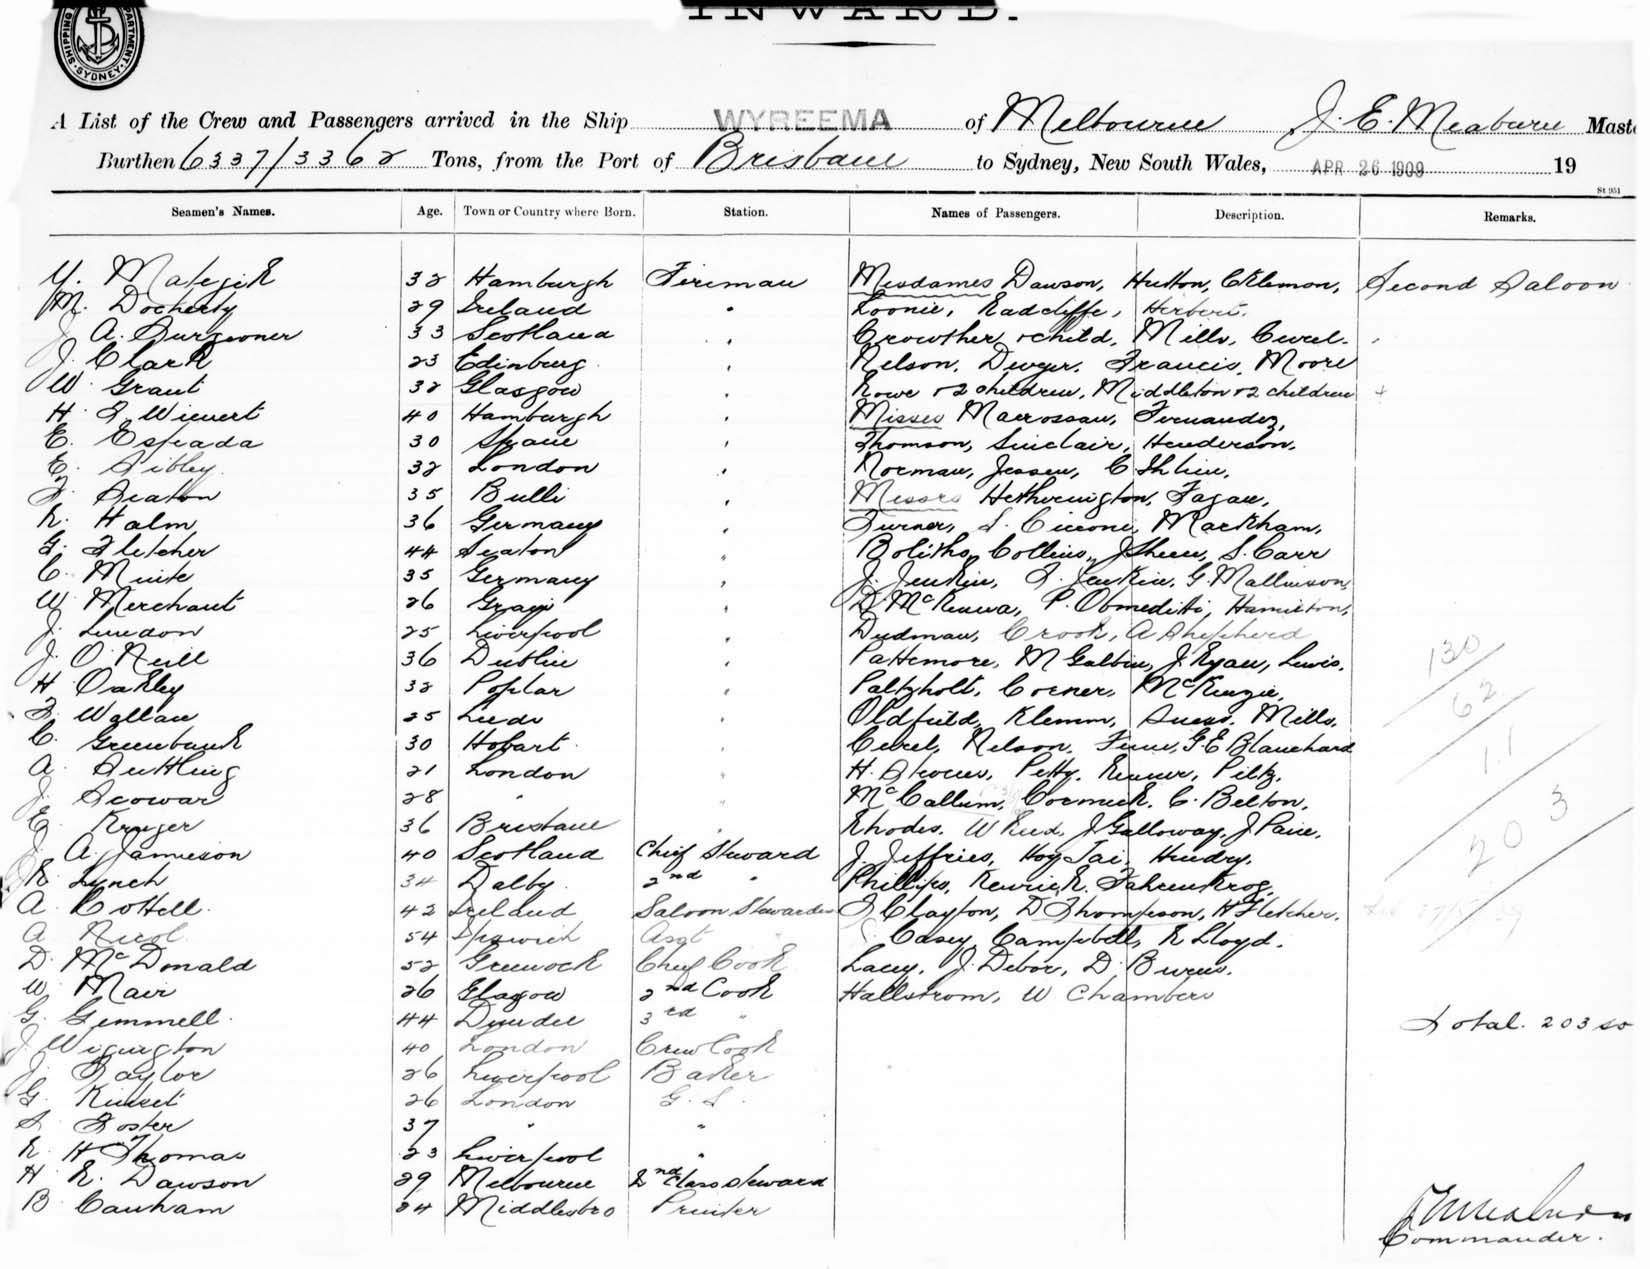 INWARD.
SHIPPING DEPARTMENT SYDNEY
A List of the Crew and Passengers arrived in the Ship WYREEMA of Melbourne J. E. Meaburn Maste
Burthen 6337/3362 Tons, from the Port of Brisbane to Sydney, New South Wales, APR 26 1909 19
St 951
Seamen's Names. Age. Town or Country where Born. Station. Names of Passengers. Description. Remarks.
32 Hamburgh Fireman Mesdames Dawson, Hutton, Second Saloon
M. Docherty 29 Ireland " Loonie, Radcliffe, Herbert.
J A. Surgeoner 33 Scotland " Crowther & child, Mills,
J. Clark 23 Edinburg " Nelson, Dwyer, Francis, Moore
W. Grant 32 Glasgow " Rowe & 2 children, Middleton & 2 children
H. F. Wienert 40 Hamburgh " Misses Macrossan, Fernandez,
E. Espada 30 Spain " Thomson, Sinclair, Henderson.
E. Sibley. 32 London " Norman, Jessen,
F. Seaton 35 Bulli " Messrs Hetherington, Fagan,
R. Halm 36 Germany " Turner, S. Ciccone, Markham,
G. Fletcher 44 Seaton " Bolitho, Collins, S. Carr
C. 35 Germany " J. Jenkin, F. Jenkin, G. Mallinson,
W. Merchant 26 Grays " D. McKenna, P. Obmeditti, Hamilton,
J. 25 Liverpool " Dudman, Crook, A Shepherd
J. O'Neill 36 Dublin " Pattemore, M Galbin, J. Ryan, Lewis.
H Oakley 32 Poplar " Paltzholt, Corner, McKenzie,
F. Wallan 25 Leeds " Oldfield, Klemm, Suess. Mills,
C. Greenbank 30 Hobart. " Nelson. G. E Blanchard
A. Suttling 21 London " H. Petty. Piltz,
J. Scowar 28 " " McCallum, Cormick. C. Belton,
E. Kruger 36 Brisbane " Rhodes. W Reid, J Galloway, J Paice.
J. A. Jamieson 40 Scotland Chief Steward J. Jeffries, Hoy Jai, Hendry.
R. Lynch 34 Dalby. 2nd " Phillips, Kenrick, Fahrenkrog,
A. Cottell. 42 Ireland Saloon Stewardess F Clayton, D Thompson, H Fletcher.
A. Nicol 54 Ipswich Asst " Casey, Campbell, R Lloyd.
D. McDonald 52 Greenock Chief Cook Lacey. J. Debor, D. Burns.
W. Mair 26 Glasgow 2nd Cook Hallstrom, W Chambers
G. Gemmell. 44 Dundee 3rd "
J. Wigington 40 London Crew Cook
J. Taylor 26 Liverpool Baker
G. 26 London G. S.
S. Foster 37 " "
R. H Thomas 23 Liverpool "
H R. Dawson 29 Melbourne 2nd Class Steward
B Canham 24 Middlesbro Printer
130
62
11
203
Total. 203 so
Commander.